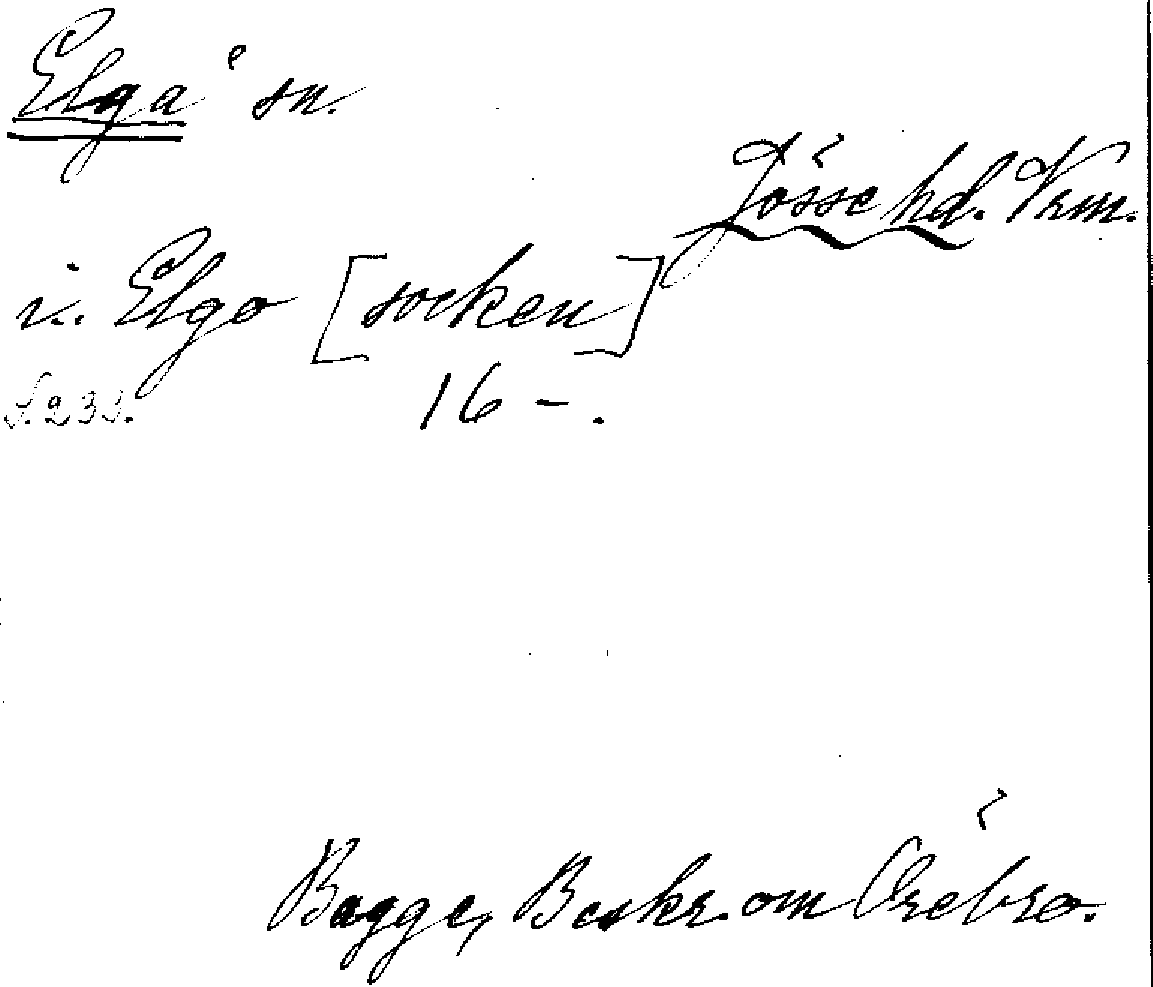 Elgå sn.
Jösse hd. Vrm.
i. Elgo [socken]
S. 233. 16-.
Bagge, Beskr. om Örebro.